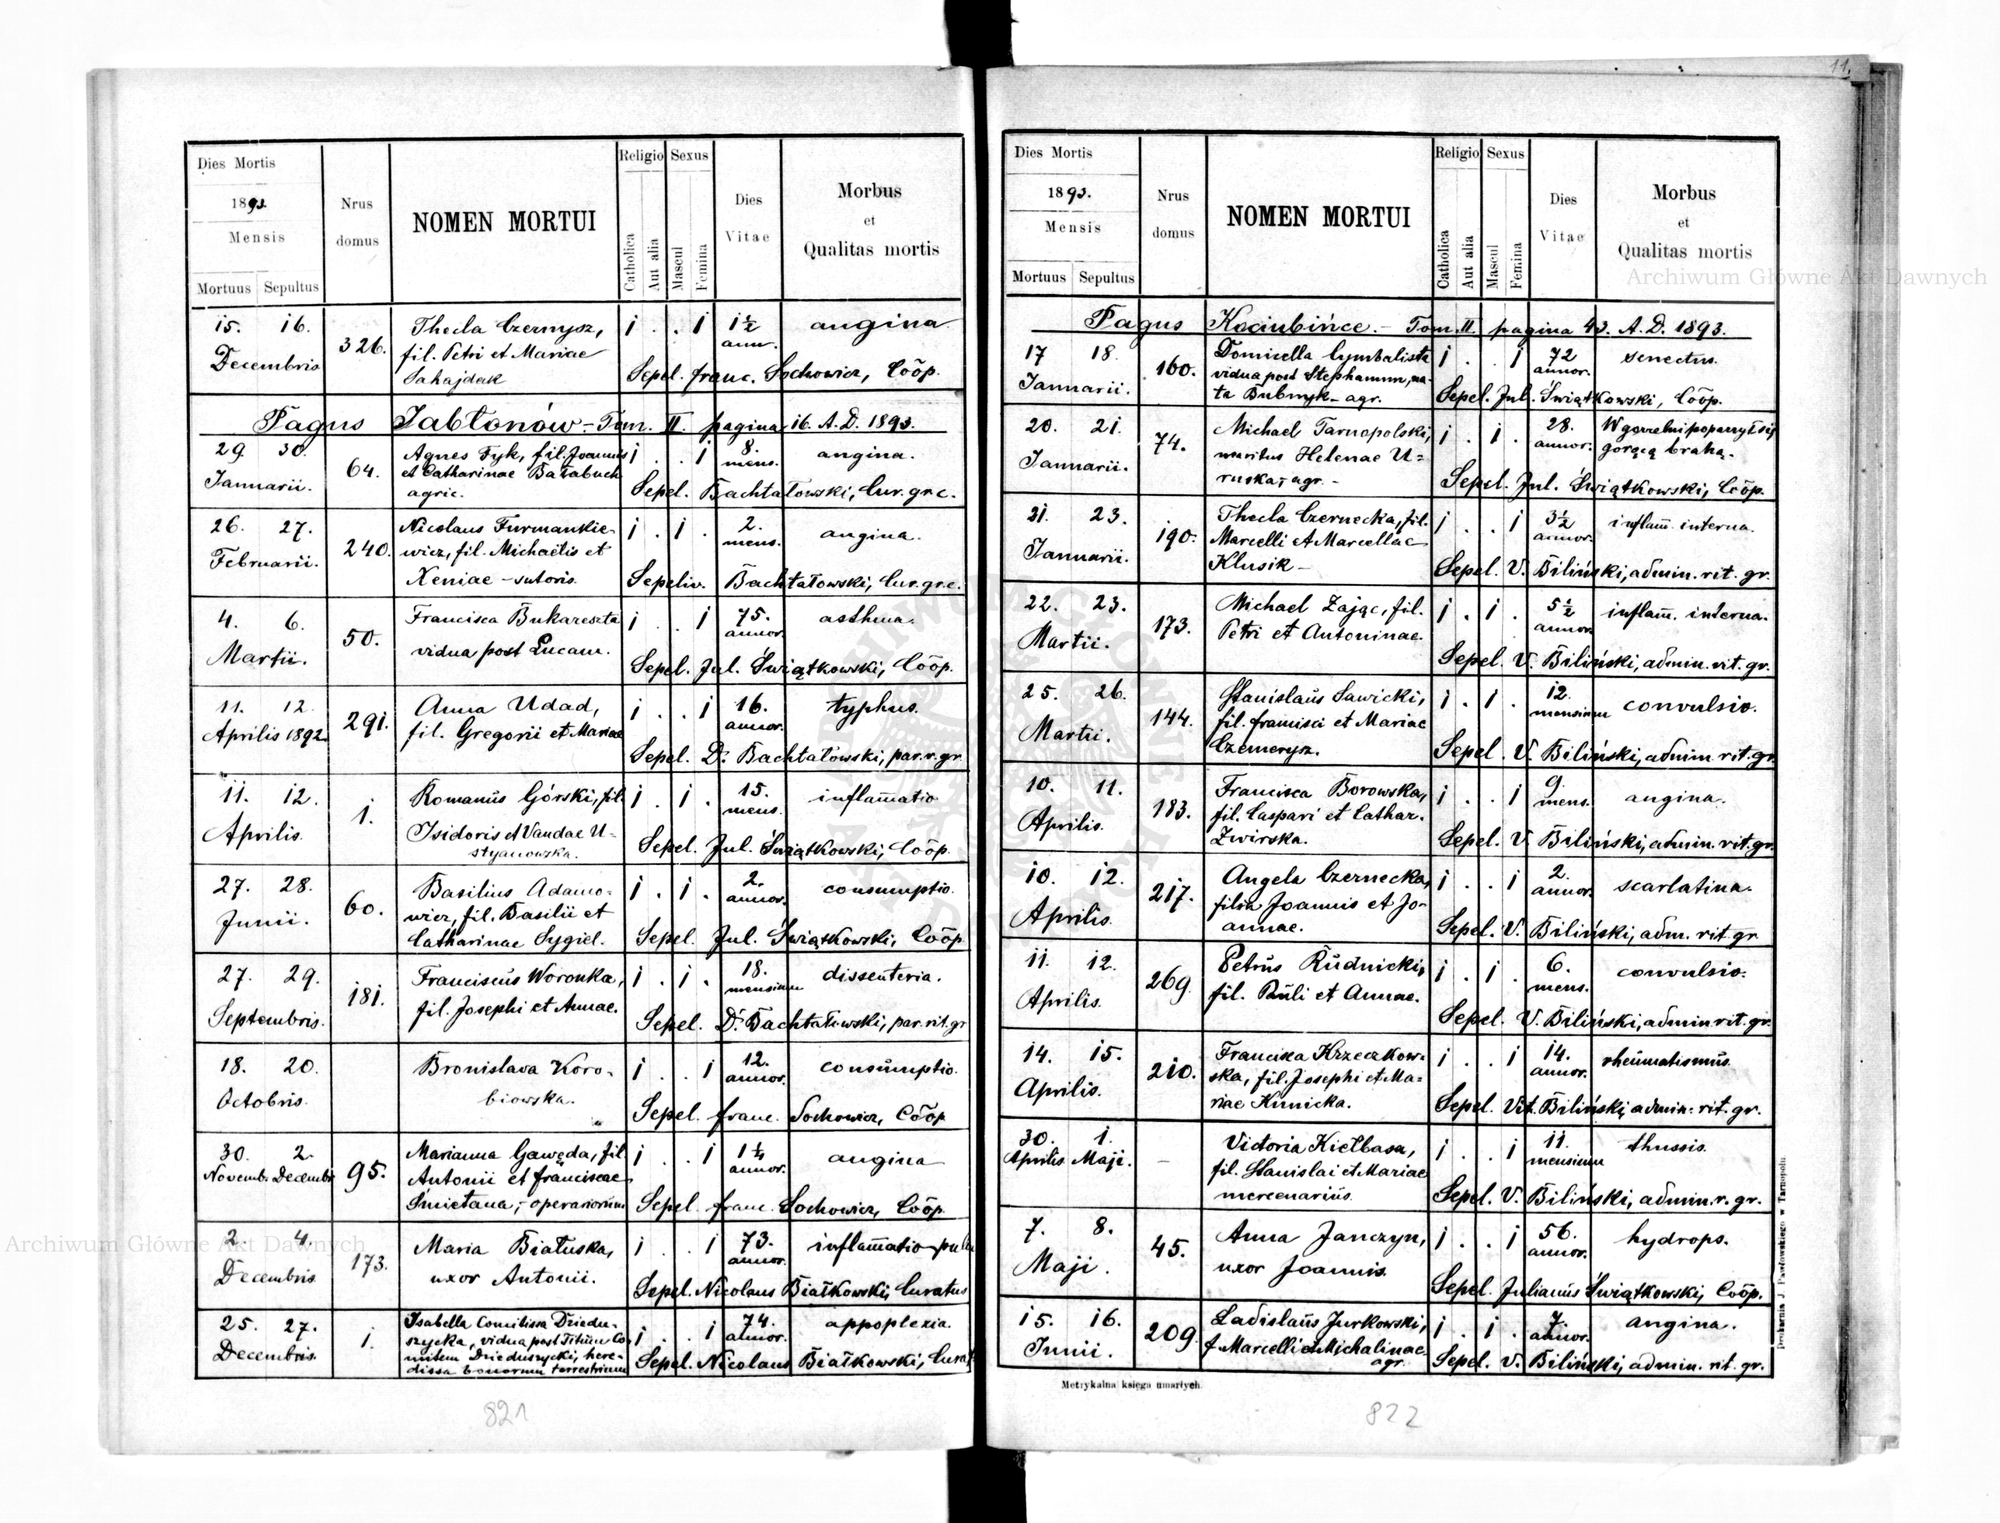 11.
Dies Mortis
1893.
Mensis
Mortuus Sepultus
Nrus domus
NOMEN MORTUI
Religio Sexus
Catholica
Aut alia
Mascul
Femina
Dies Vitae
Morbus
et
Qualitas mortis
15. 16. Decembris 326. Thecla Czernysz, 1 . . 1 1½ ann. angina
fil. Petri et Mariae
Sahajdak Sepel. franc. Sochowicz, Coop.
Pagus Jabłonów – Tom. II. pagina 16. A. D. 1893.
29. 30. Januarii. 64. Agnes Fyk, fil. Joannis 1 . . 1 8. mens. angina.
et Catharinae Bałabuch
agric. Sepel. Bachtałowski, Cur. gr. c.
26. 27. Februarii. 240. Nicolaus Furmankie- 1 . 1 . 2. mens. angina.
wicz, fil. Michaëlis et
Xeniae – sutoris. Sepeliv. Bachtałowski, Cur. gr. c.
4. 6. Martii. 50. Francisca Bukareszta 1 . . 1 75. annor. asthma.
vidua post Lucam. Sepel. Jul. Świątkowski, Coop.
11. 12. Aprilis 1892. 291. Anna Udad, 1 . . 1 16. annor. typhus.
fil. Gregorii et Mariae
Sepel. D. Bachtałowski, par. r. gr.
11. 12. Aprilis. 1. Romanus Górski, fil. 1 . 1 . 15. mens. inflammatio
Isidoris et Vandae U-
styanowska. Sepel. Jul. Świątkowski, Coop.
27. 28. Junii. 60. Basilius Adamo- 1 . 1 . 2. annor. consumptio.
wicz, fil. Basilii et
Catharinae Sygiel. Sepel. Jul. Świątkowski, Coop.
27. 29. Septembris. 181. Franciscus Woronka, 1 . 1 . 18. mensium dissenteria.
fil. Josephi et Annae.
Sepel. D. Bachtałowski, par. rit. gr
18. 20. Octobris. Bronislava Koro- 1 . . 1 12. annor. consumptio.
biowska. Sepel. franc. Sochowicz, Coop
30. 2. Novemb. Decembr. 95. Marianna Gawęda, fil. 1 . . 1 1¼ annor. angina
Antonii et Franciscae
Śmietana, – operariorum Sepel. franc. Sochowicz, Coop.
2. 4. Decembris. 173. Maria Białuska, 1 . . 1 73. annor. inflammatio
uxor Antonii. Sepel. Nicolaus Białkowski, Curatus
25. 27. Decembris. 1. Isabella Comitissa Dziedu- 1 . . 1 74. annor. appoplexia.
szycka, vidua post Titum Co-
mitem Dzieduszycki, here-
dissa bonorum terrestrium Sepel. Nicolaus Białkowski, Curat
821
Dies Mortis
1893.
Mensis
Mortuus Sepultus
Nrus domus
NOMEN MORTUI
Religio Sexus
Catholica
Aut alia
Mascul
Femina
Dies Vitae
Morbus
et
Qualitas mortis
Pagus Kociubińce. – Tom. II. pagina 43. A. D. 1893.
17 18. Januarii. 160. Domicella Cymbalista 1 . . 1 72 annor. senectus.
vidua post Stephanum, na-
ta Bubnyk – agr. Sepel. Jul. Świątkowski, Coop.
20. 21. Januarii. 74. Michael Tarnopolski, 1 . 1 . 28. annor. W gorzelni poparzył się
maritus Helenae U- gorącą brahą.
ruska, agr. – Sepel. Jul. Świątkowski, Coop.
21. 23. Januarii. 190. Thecla Czernecka, fil. 1 . . 1 3½ annor. inflam. interna.
Marcelli et Marcellae
Klusik – Sepel. V. Biliński, admin. rit. gr.
22. 23. Martii. 173. Michael Zając, fil. 1 . 1 . 5½ annor. inflam. interna.
Petri et Antoninae.
Sepel. V. Biliński, admin. rit. gr.
25. 26. Martii. 144. Stanislaus Sawicki, 1 . 1 . 12. mensium convulsio.
fil. francisci et Mariae
Czemerysz. Sepel. V. Biliński, admin. rit. gr.
10. 11. Aprilis. 183. Francisca Borowska, 1 . . 1 9 mens. angina.
fil. Caspari et Cathar.
Zwirska. Sepel. V. Biliński, admin. rit. gr.
10. 12. Aprilis. 217. Angela Czernecka, 1 . . 1 2. annor. scarlatina.
filia Joannis et Jo-
annae. Sepel. V. Biliński, adm. rit. gr
11. 12. Aprilis. 269. Petrus Rudnicki, 1 . 1 . 6. mens. convulsio.
fil. Pauli et Annae.
Sepel. V. Biliński, admin. rit. gr.
14. 15. Aprilis. 210. Francisca Krzeczkow- 1 . . 1 14. annor. rheumatismus.
ska, fil. Josephi et Ma-
riae Kunicka. Sepel. Vit. Biliński, admin. rit. gr.
30. 1. Aprilis Maji. – Victoria Kiełbasa, 1 . . 1 11. mensium thussis.
fil. Stanislai et Mariae
mercenarius. Sepel. V. Biliński, admin. r. gr.
7. 8. Maji. 45. Anna Janczyn, 1 . . 1 56. annor. hydrops.
uxor Joannis. Sepel. Julianus Świątkowski, Coop.
15. 16. Junii. 209. Ladislaus Jurkowski, 1 . 1 . 7. annor. angina.
f. Marcelli et Michalinae
agr. Sepel. V. Biliński, admin. rit. gr.
Metrykalna księga umarłych.
Drukarnia J. Pawłowskiego w Tarnopolu.
822
Archiwum Główne Akt Dawnych
Archiwum Główne Akt Dawnych